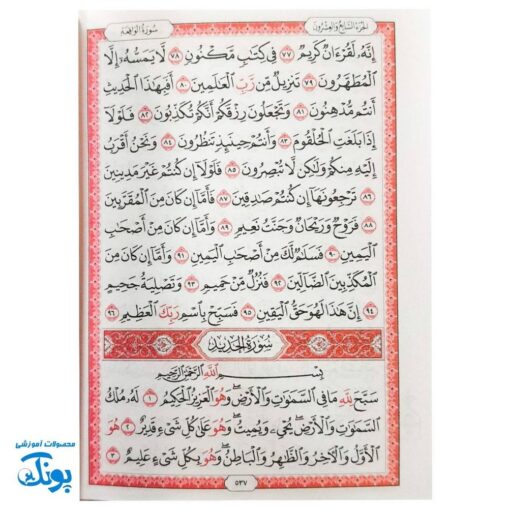 الجزء السابع والعشرون
سورة الواقعة
إِنَّهُ لَقُرْءَانٌ كَرِيمٌ ﴿٧٧﴾ فِي كِتَابٍ مَّكْنُونٍ ﴿٧٨﴾ لَّا يَمَسُّهُ إِلَّا
الْمُطَهَّرُونَ ﴿٧٩﴾ تَنزِيلٌ مِّن رَّبِّ الْعَالَمِينَ ﴿٨٠﴾ أَفَبِهَٰذَا الْحَدِيثِ
أَنتُم مُّدْهِنُونَ ﴿٨١﴾ وَتَجْعَلُونَ رِزْقَكُمْ أَنَّكُمْ تُكَذِّبُونَ ﴿٨٢﴾ فَلَوْلَا
إِذَا بَلَغَتِ الْحُلْقُومَ ﴿٨٣﴾ وَأَنتُمْ حِينَئِذٍ تَنظُرُونَ ﴿٨٤﴾ وَنَحْنُ أَقْرَبُ
إِلَيْهِ مِنكُمْ وَلَٰكِن لَّا تُبْصِرُونَ ﴿٨٥﴾ فَلَوْلَا إِن كُنتُمْ غَيْرَ مَدِينِينَ
﴿٨٦﴾ تَرْجِعُونَهَا إِن كُنتُمْ صَادِقِينَ ﴿٨٧﴾ فَأَمَّا إِن كَانَ مِنَ الْمُقَرَّبِينَ
﴿٨٨﴾ فَرَوْحٌ وَرَيْحَانٌ وَجَنَّتُ نَعِيمٍ ﴿٨٩﴾ وَأَمَّا إِن كَانَ مِنْ أَصْحَابِ
الْيَمِينِ ﴿٩٠﴾ فَسَلَامٌ لَّكَ مِنْ أَصْحَابِ الْيَمِينِ ﴿٩١﴾ وَأَمَّا إِن كَانَ مِنَ
الْمُكَذِّبِينَ الضَّالِّينَ ﴿٩٢﴾ فَنُزُلٌ مِّنْ حَمِيمٍ ﴿٩٣﴾ وَتَصْلِيَةُ جَحِيمٍ
﴿٩٤﴾ إِنَّ هَٰذَا لَهُوَ حَقُّ الْيَقِينِ ﴿٩٥﴾ فَسَبِّحْ بِاسْمِ رَبِّكَ الْعَظِيمِ ﴿٩٦﴾
سورة الحديد
بِسْمِ اللَّهِ الرَّحْمَٰنِ الرَّحِيمِ
سَبَّحَ لِلَّهِ مَا فِي السَّمَاوَاتِ وَالْأَرْضِ وَهُوَ الْعَزِيزُ الْحَكِيمُ ﴿١﴾ لَهُ مُلْكُ
السَّمَاوَاتِ وَالْأَرْضِ يُحْيِي وَيُمِيتُ وَهُوَ عَلَىٰ كُلِّ شَيْءٍ قَدِيرٌ ﴿٢﴾ هُوَ
الْأَوَّلُ وَالْآخِرُ وَالظَّاهِرُ وَالْبَاطِنُ وَهُوَ بِكُلِّ شَيْءٍ عَلِيمٌ ﴿٣﴾
٥٣٧
محصولات آموزشی
پونک